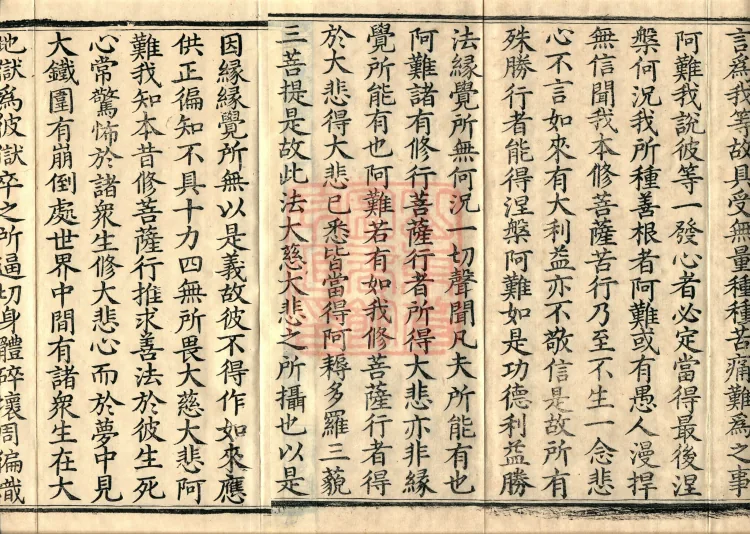 言爲我等故具受無量種種苦痛難為之事
阿難我說彼等一發心者必定當得最後涅
槃何況我所種善根者阿難或有愚人漫捍
無信聞我本修菩薩苦行乃至不生一念悲
心不言如來有大利益亦不敬信是故所有
殊勝行者能得涅槃阿難如是功德利益勝
法緣覺所無何況一切聲聞凡夫所能有也
阿難諸有修行菩薩行者所得大悲亦非緣
覺所能有也阿難若有如我修菩薩行者得
於大悲得大悲已悉皆當得阿耨多羅三藐
三菩提是故此法大慈大悲之所攝也以是
因緣緣覺所無以是義故彼不得作如來應
供正徧知不具十力四無所畏大慈大悲阿
難我知本昔修菩薩行推求善法於彼生死
心常驚怖於諸衆生修大悲心而於夢中見
大鐵圍有崩倒處世界中間有諸衆生在大
地獄爲彼獄卒之所逼切身體碎壞周徧熾